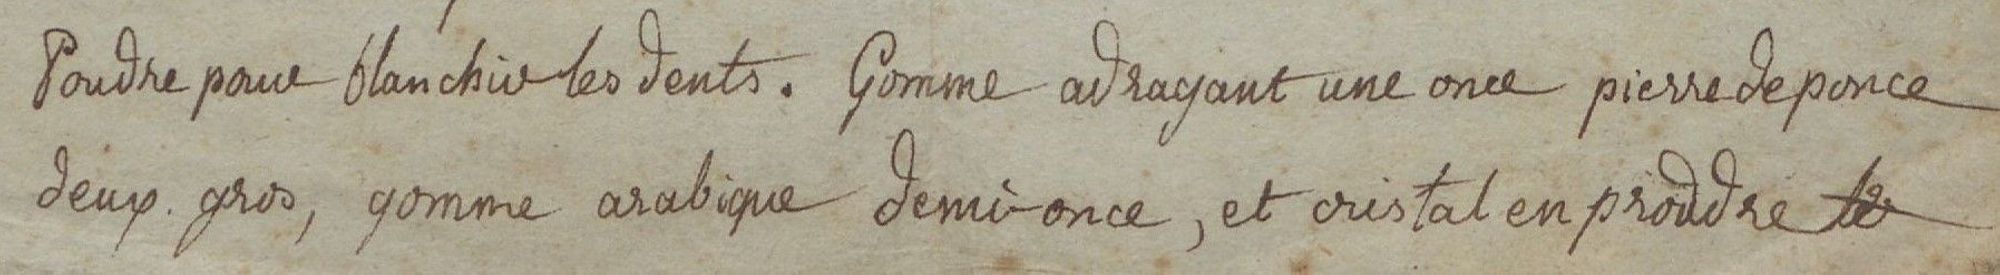 Poudre pour blanchir les dents. Gomme adragant une once pierre de ponce
deux gros, gomme arabique demi-once, et cristal en proudre